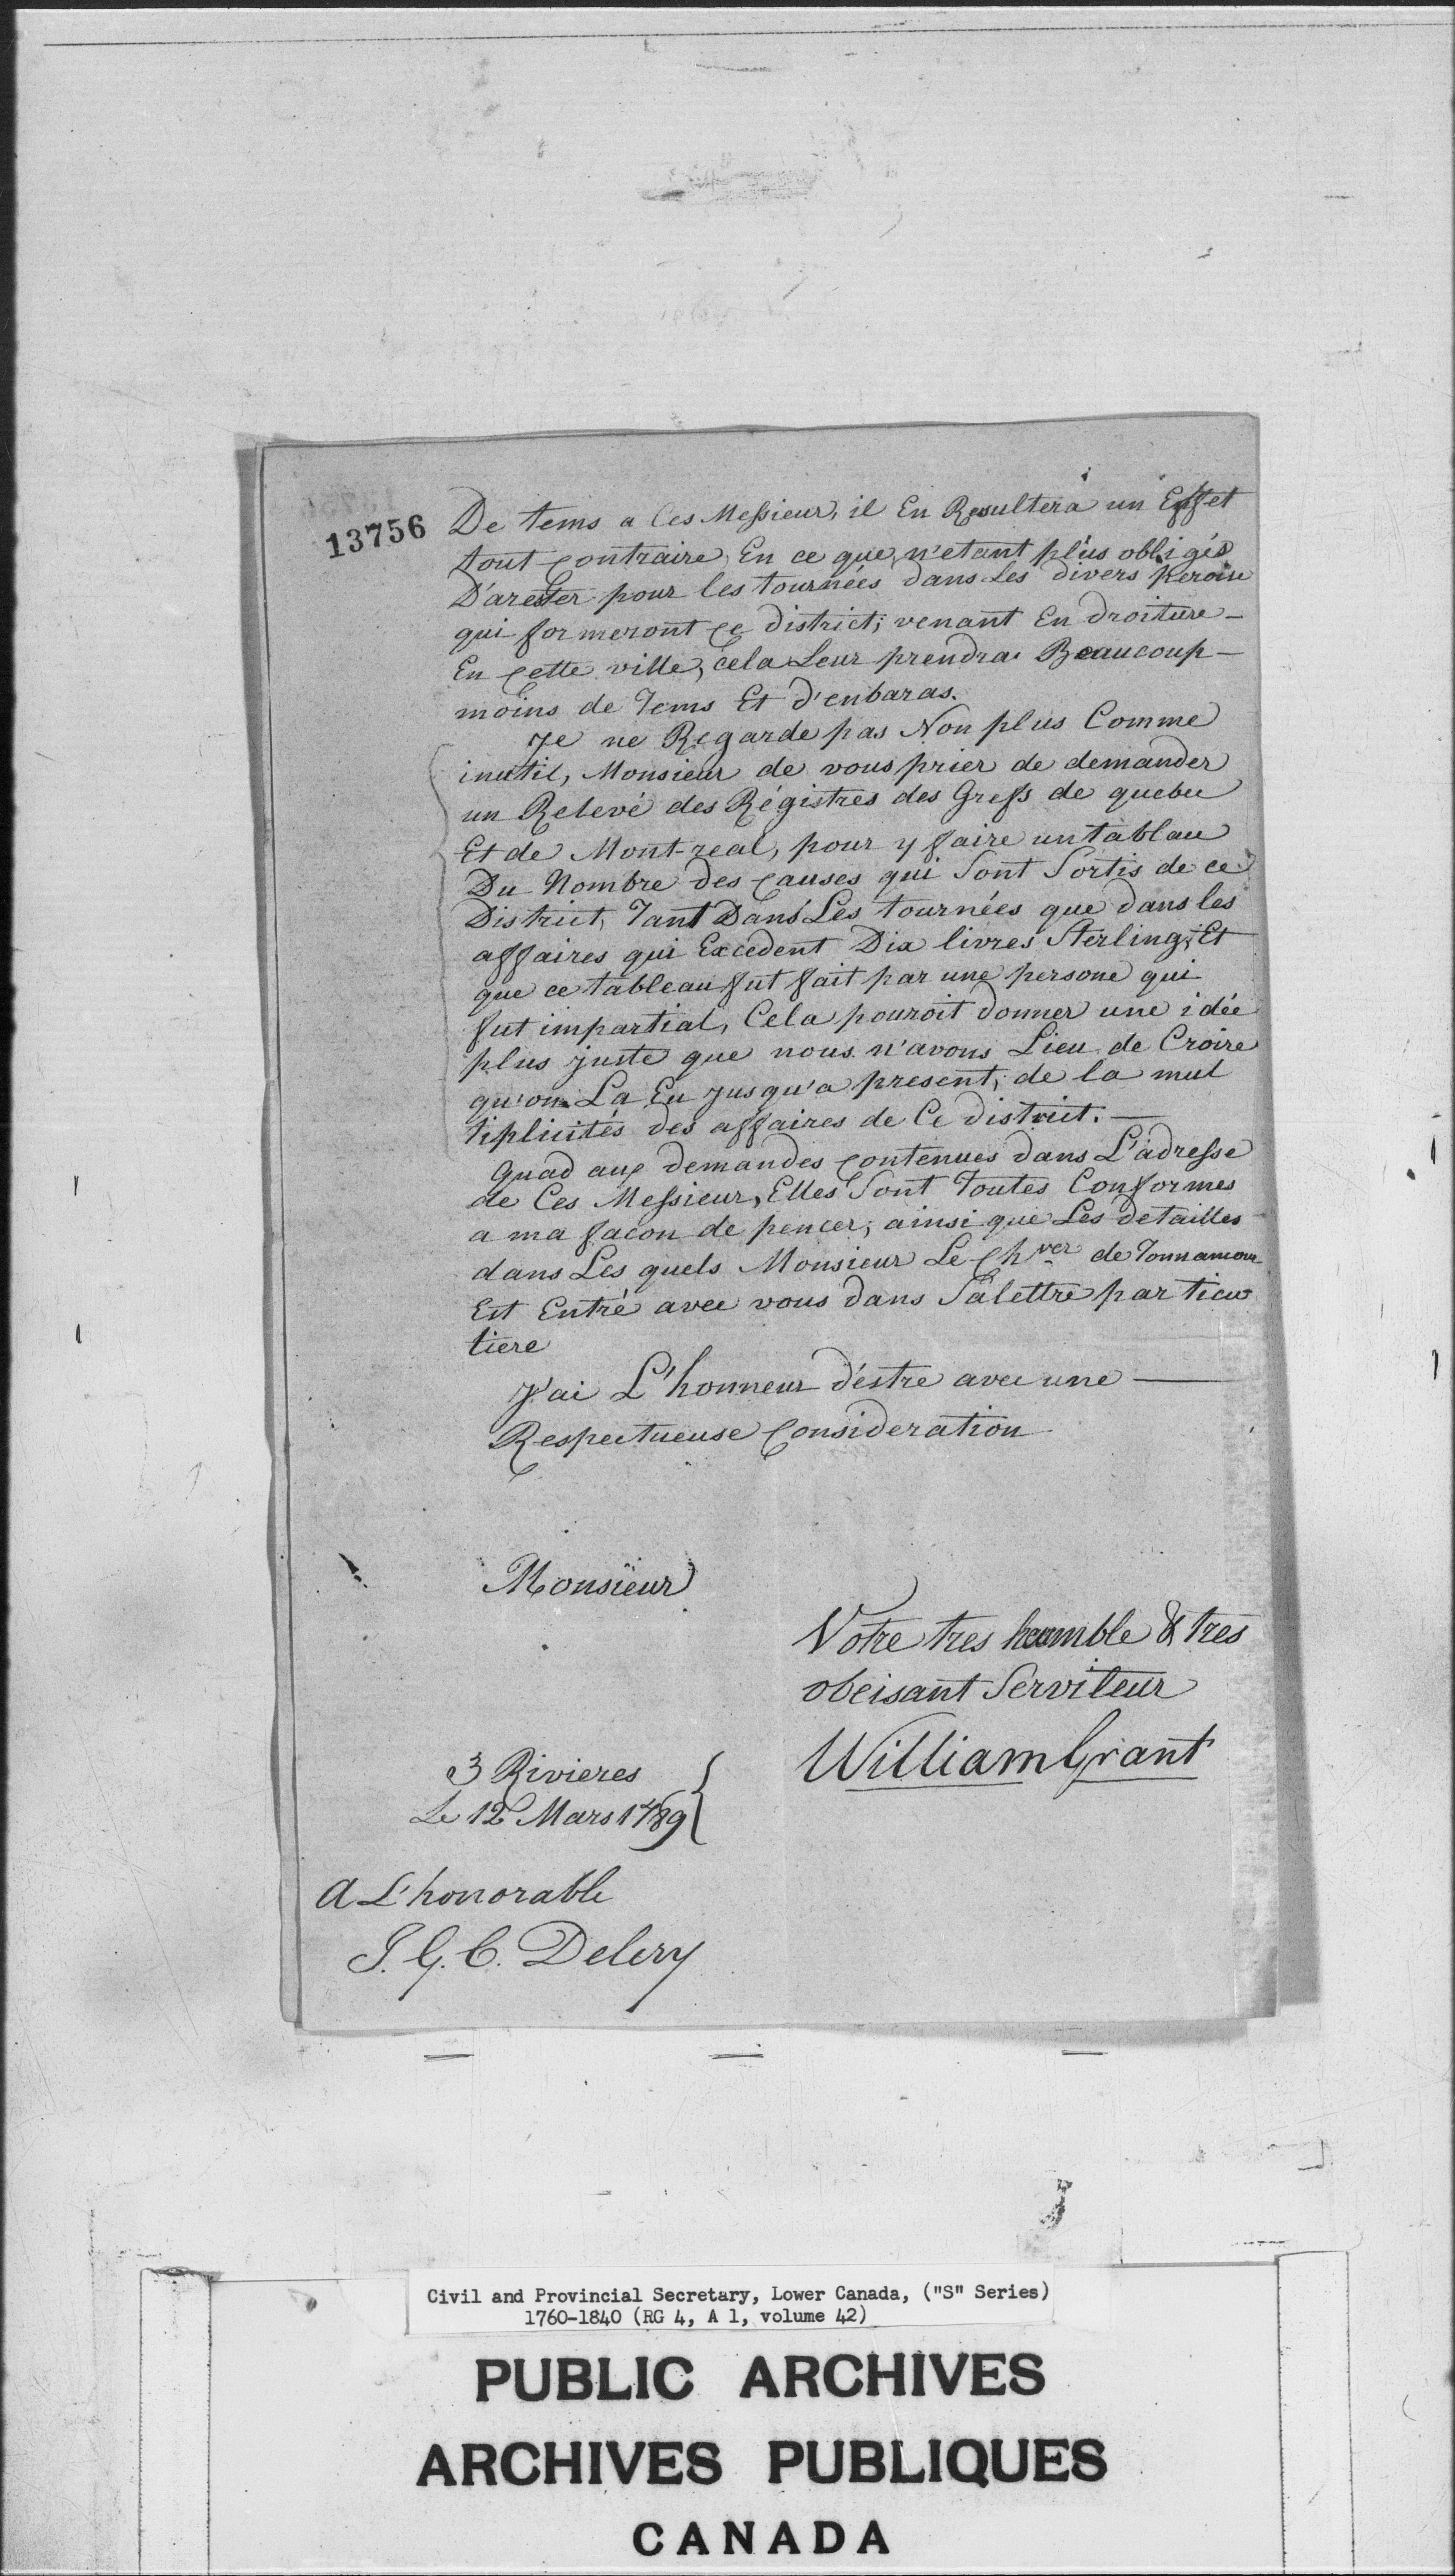 13756
De tems a Ces Messieur, il En Resultera un Effet
tout contraire, En ce que, n'etant plus obligés
D'arester pour les tournées dans Les divers Peroise
qui formeront ce district; venant En droiture -
En cette ville, cela Leur prendra Beaucoup -
moins de Tems Et d'enbaras.
Je ne Regarde pas Non plus Comme
inutil, Monsieur de vous prier de demander
un Relevé des Régistres des Greffs de quebec
Et de Mont-real, pour y faire un tablau
Du Nombre des causes qui Sont Sortis de ce
District, Tant Dans Les tournées que dans les
affaires qui Excedent Dix livres Sterling, Et
que ce tableau fut fait par une persone qui
fut impartial, Cela pouroit donner une idée
plus juste que nous n'avons Lieu de Croire
qu'on La Eu jusqu'a present, de la mul
tiplicités des affaires de Ce district. -
Quad aux demandes contenues dans L'adresse
de Ces Messieur, Elles Sont Toutes Conformes
a ma facon de pencer; ainsi que Les detailles
dans Les quels Monsieur Le Chver de Tonnancour
Est Entré avec vous dans Sa lettre particu
liere
J'ai L'honneur d'estre avec une -
Respectueuse Consideration
Monsieur
Votre tres humble & tres
obeisant Serviteur
William Grant
3 Rivieres
Le 12 Mars 1789
A L'honorable
J. G. C. Delery
Civil and Provincial Secretary, Lower Canada, ("S" Series)
1760-1840 (RG 4, A 1, volume 42)
PUBLIC ARCHIVES
ARCHIVES PUBLIQUES
CANADA